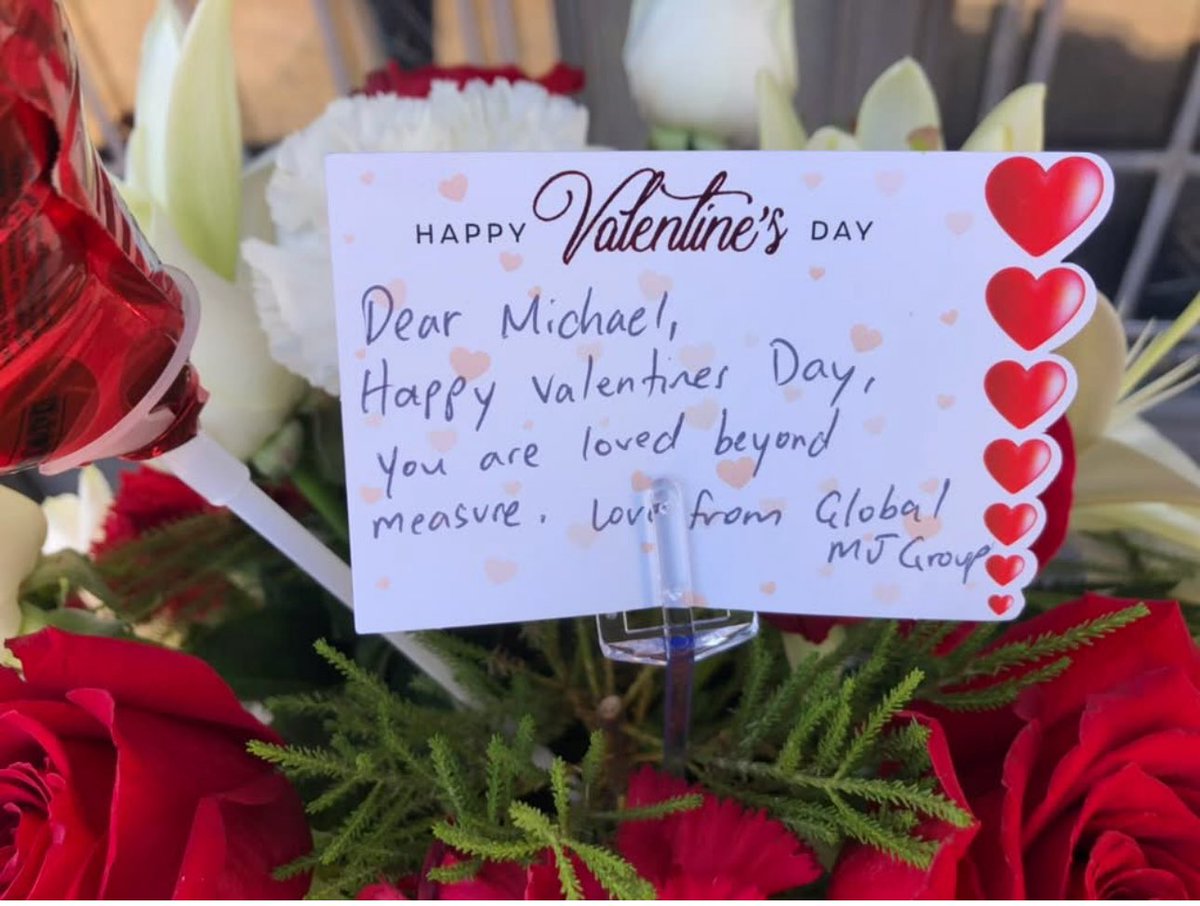 HAPPY Valentine's DAY
Dear Michael,
Happy Valentines Day,
you are loved beyond
measure. Love from Global
MJ Group